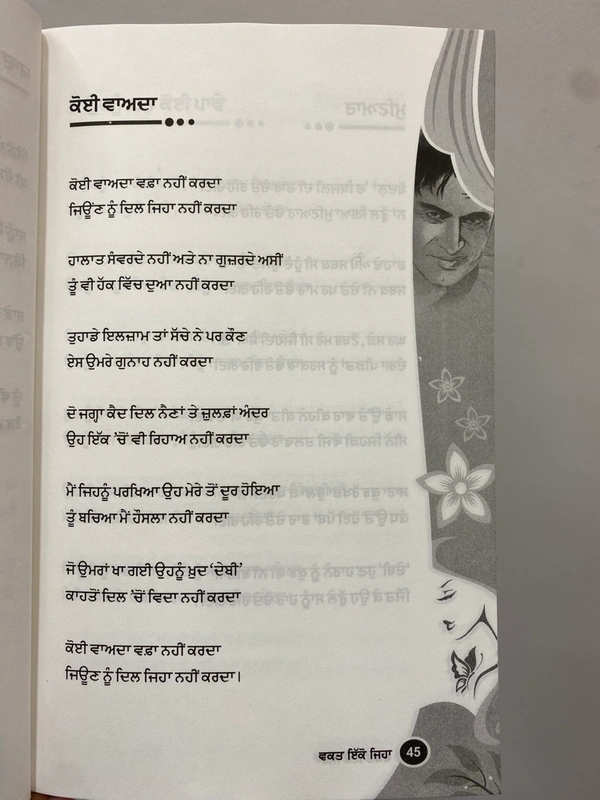 ਕੋਈ ਵਾਅਦਾ
ਕੋਈ ਵਾਅਦਾ ਵਫ਼ਾ ਨਹੀਂ ਕਰਦਾ
ਜਿਊਂਣ ਨੂੰ ਦਿਲ ਜਿਹਾ ਨਹੀਂ ਕਰਦਾ
ਹਾਲਾਤ ਸੰਵਰਦੇ ਨਹੀਂ ਅਤੇ ਨਾ ਗੁਜ਼ਰਦੇ ਅਸੀਂ
ਤੂੰ ਵੀ ਹੱਕ ਵਿੱਚ ਦੁਆ ਨਹੀਂ ਕਰਦਾ
ਤੁਹਾਡੇ ਇਲਜ਼ਾਮ ਤਾਂ ਸੱਚੇ ਨੇ ਪਰ ਕੌਣ
ਏਸ ਉਮਰੇ ਗੁਨਾਹ ਨਹੀਂ ਕਰਦਾ
ਦੋ ਜਗ੍ਹਾ ਕੈਦ ਦਿਲ ਨੈਣਾਂ ਤੇ ਜ਼ੁਲਫ਼ਾਂ ਅੰਦਰ
ਉਹ ਇੱਕ 'ਚੋਂ ਵੀ ਰਿਹਾਅ ਨਹੀਂ ਕਰਦਾ
ਮੈਂ ਜਿਹਨੂੰ ਪਰਖਿਆ ਉਹ ਮੇਰੇ ਤੋਂ ਦੂਰ ਹੋਇਆ
ਤੂੰ ਬਚਿਆ ਮੈਂ ਹੌਸਲਾ ਨਹੀਂ ਕਰਦਾ
ਜੋ ਉਮਰਾਂ ਖਾ ਗਈ ਉਹਨੂੰ ਖ਼ੁਦ 'ਦੇਬੀ'
ਕਾਹਤੋਂ ਦਿਲ 'ਚੋਂ ਵਿਦਾ ਨਹੀਂ ਕਰਦਾ
ਕੋਈ ਵਾਅਦਾ ਵਫ਼ਾ ਨਹੀਂ ਕਰਦਾ
ਜਿਊਣ ਨੂੰ ਦਿਲ ਜਿਹਾ ਨਹੀਂ ਕਰਦਾ।
ਵਕਤ ਇੱਕੋ ਜਿਹਾ 45